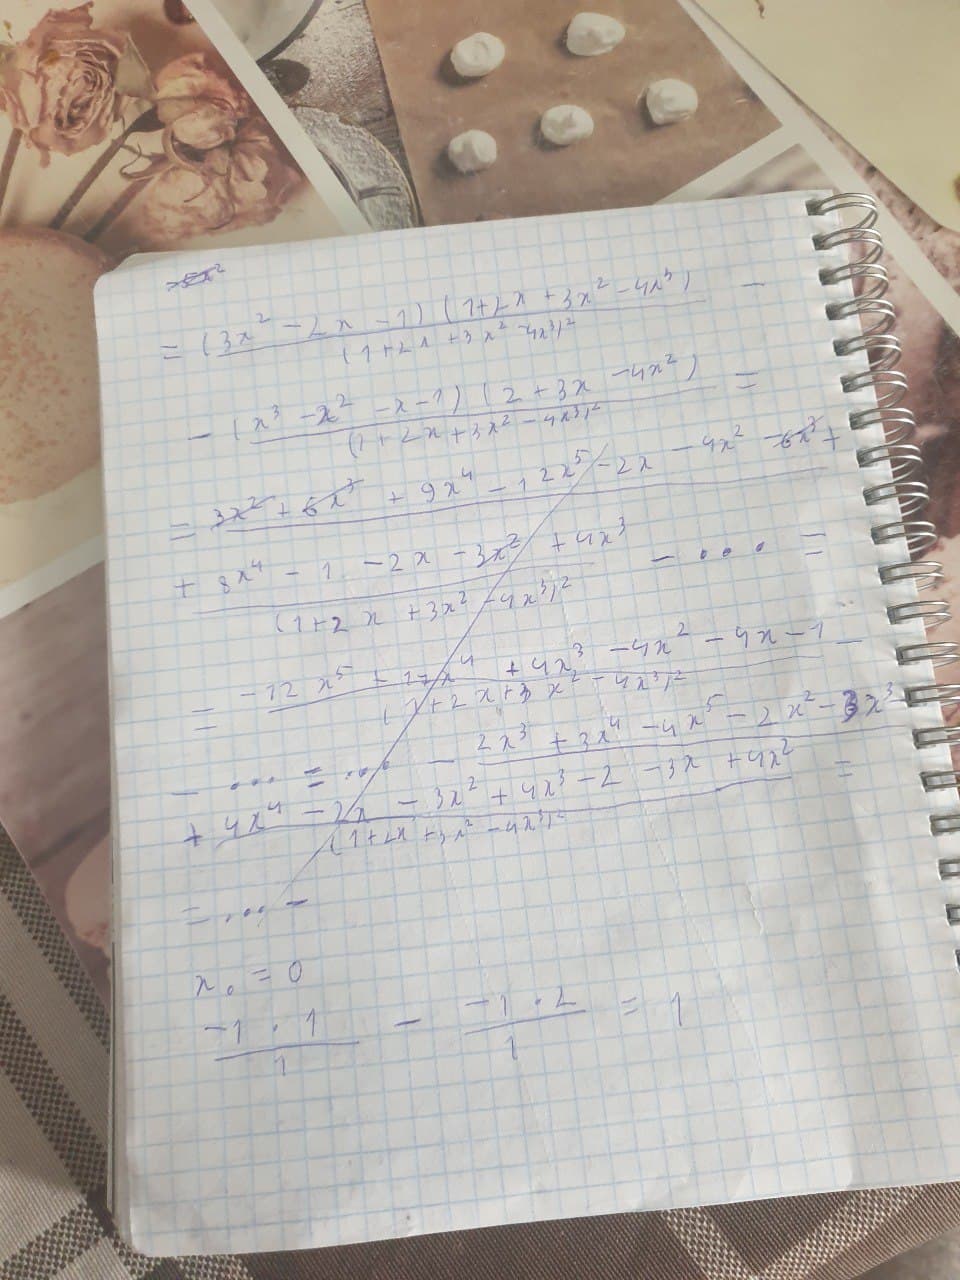 5x²
= (3x² - 2x - 1) (1+2x + 3x² - 4x³) -
(1+2x+3x² - 4x³)²
- (x³ - x² - x - 1) (2 + 3x - 4x²) =
(1+2x+3x² - 4x³)²
= 3x² + 6x³ + 9x⁴ - 12x⁵ - 2x - 4x² - 6x³ +
+ 8x⁴ - 1 - 2x - 3x² + 4x³ - ... =
(1+2x+3x² - 4x³)²
= -12x⁵ + 17x⁴ + 4x³ - 4x² - 4x - 1 -
(1+2x+3x² - 4x³)²
- ... = ... - 2x³ + 3x⁴ - 4x⁵ - 2x² - 3x³
+ 4x⁴ - 2x - 3x² + 4x³ - 2 - 3x + 4x² =
(1+2x+3x² - 4x³)²
= ... -
x₀ = 0
-1 · 1 / 1 - -1 · 2 / 1 = 1